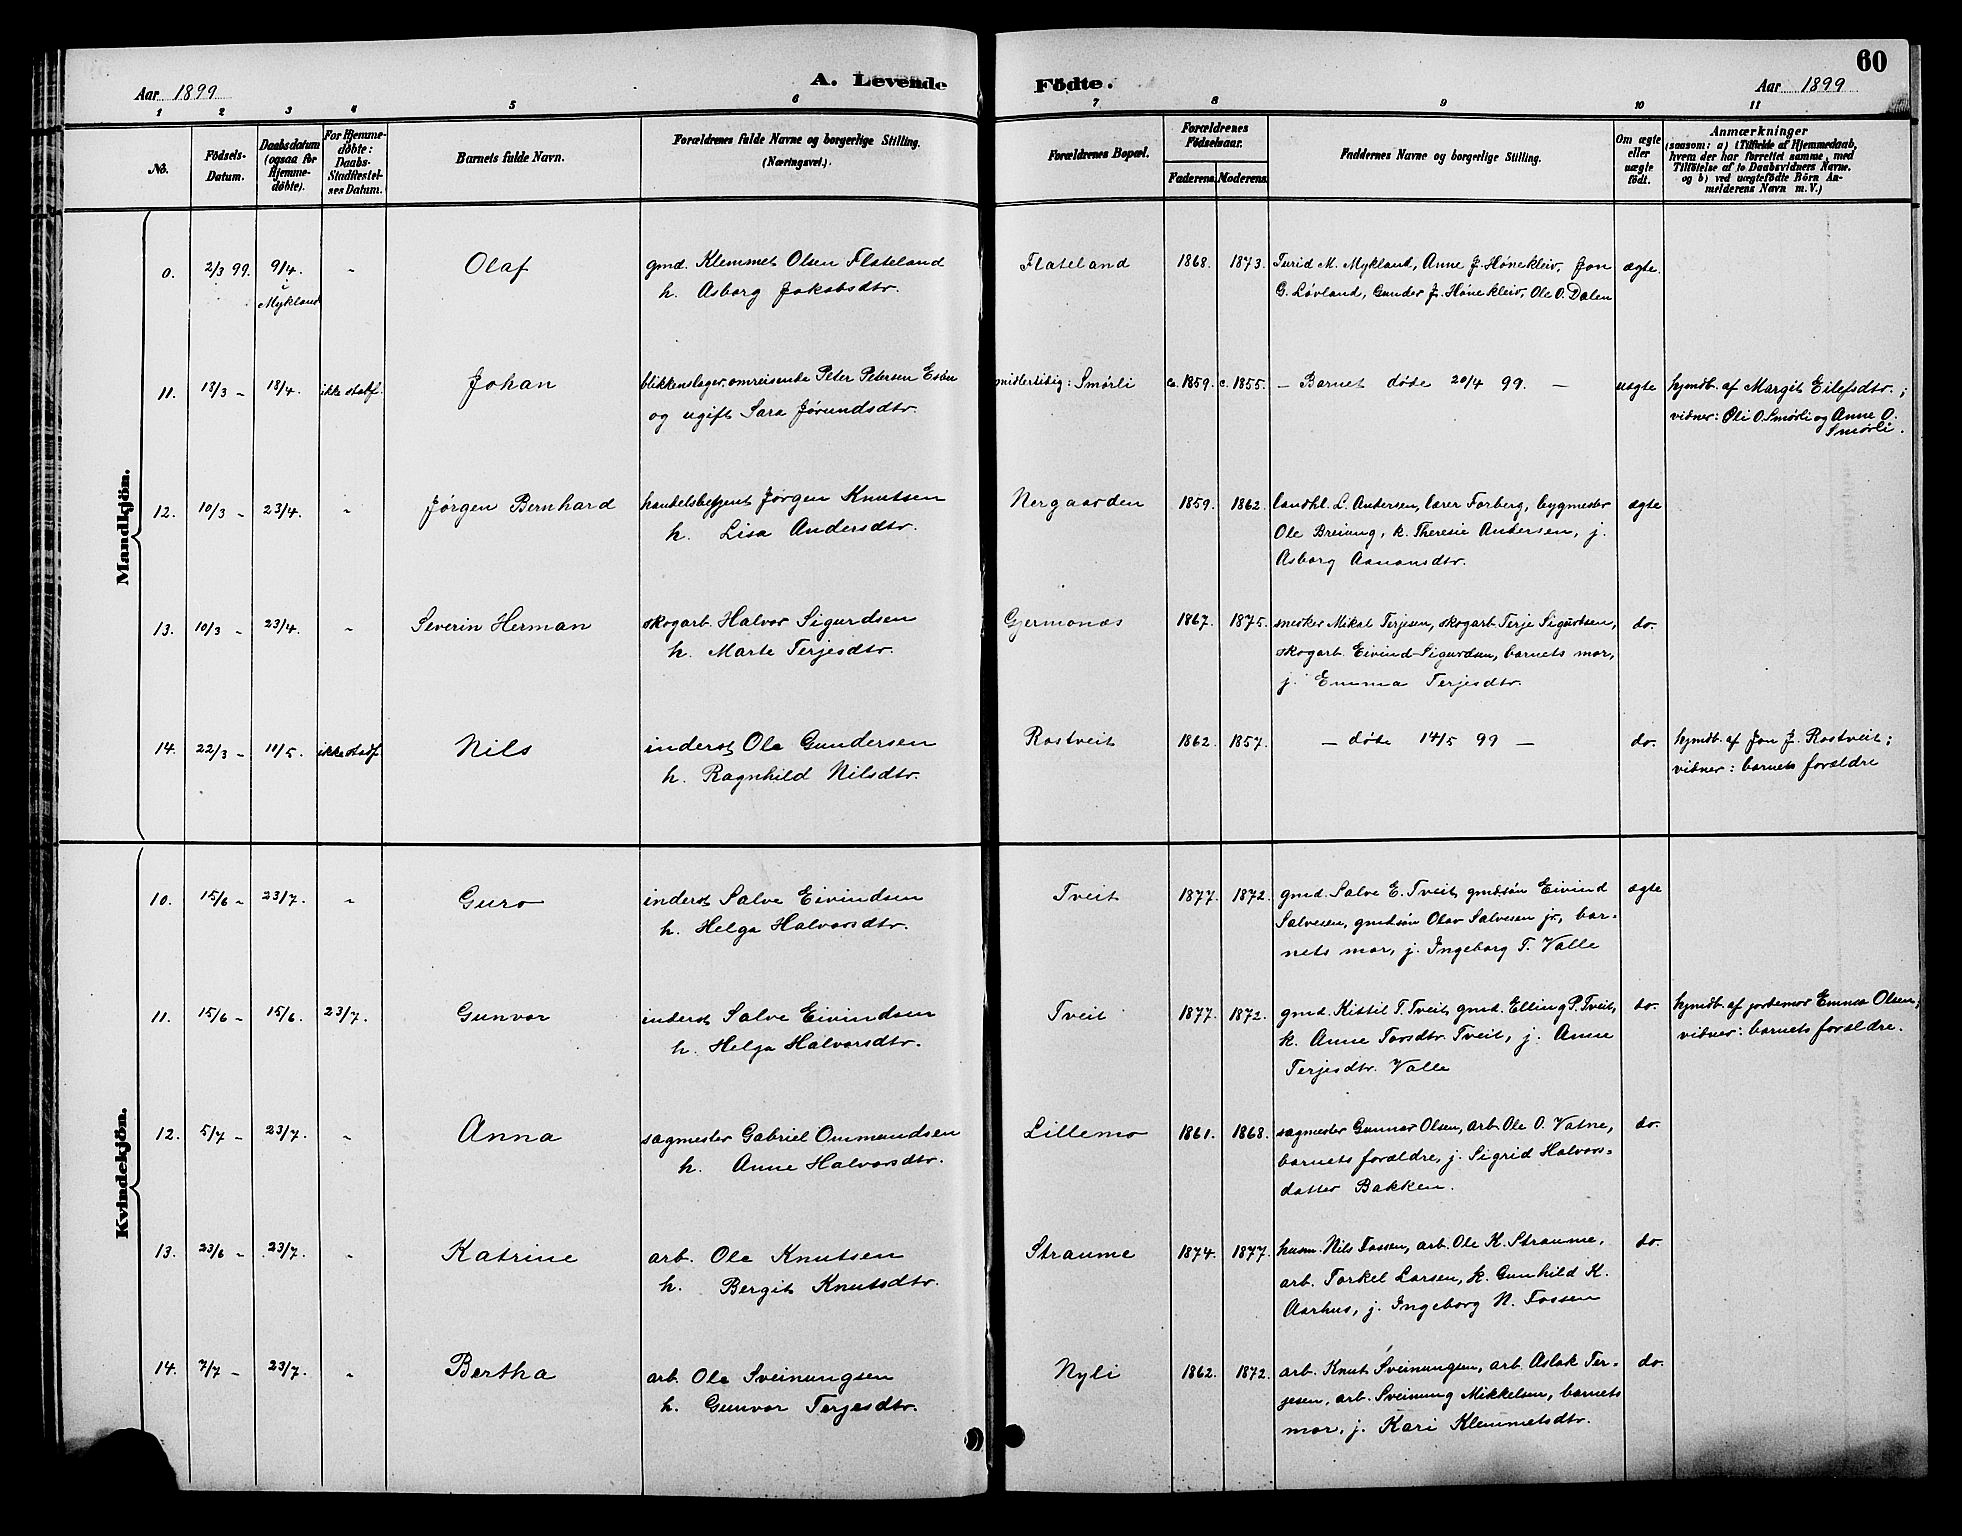 60
A. Levende Födte.
Aar 1899
Aar 1899
1 2 3 4 5 6 7 8 9 10 11
No.
Födsels-Datum.
Daabsdatum (ogsaa for Hjemmedöbte).
For Hjemmedöbte: Daabs-Stadfæstelses Datum.
Barnets fulde Navn.
Forældrenes fulde Navne og borgerlige Stilling. (Næringsvei.)
Forældrenes Bopæl.
Forældrenes Födselsaar.
Faderens. Moderens.
Faddernes Navne og borgerlige Stilling.
Om ægte eller uægte födt.
Anmærkninger
(saasom: a) i Tilfælde af Hjemmedaab, hvem der har forrettet samme, med Tilföielse af to Daabsvidners Navne, og b) ved uægtefödte Börn Anmelderens Navn m. V.)
Mandkjön.
0. 2/3 99. 9/4. i Mykland " Olaf gmd. Klemmet Olsen Flateland Flateland 1868. 1873. Turid M. Mykland, Anne J. Hønekleiv, Jon ægte.
h. Asborg Jakobsdtr. G. Løvland, Gunder J. Hønekleiv, Ole O. Dalen
11. 18/3 - 18/4. ikke stadf. Johan blikkenslager, omreisende Peter Petersen midlertidig: Smørli ca. 1859. c. 1855. - Barnet døde 20/4 99. - uægte hjmdb. af Margit Eilefsdtr.;
og ugift Sara Jørundsdtr. vidner: Øli O. Smørli og Anne O.
Smørli.
12. 10/3 - 23/4. " Jørgen Bernhard handelsbetjent Jørgen Knutsen Nergaarden 1859. 1862. landhl. L. Andersen, lærer Forberg, bygmester ægte
h. Lisa Andersdtr. Ole Breiung, k. Theresie Andersen, j.
Asborg Aanonsdtr.
13. 10/3 - 23/4. " Severin Herman skogarb. Halvor Sigurdsen Gjermonæs 1867. 1875. snedker Mikal Terjesen, skogarb. Terje Sigurdsen, do.
h. Marte Terjesdtr. skogarb. Eivind Sigurdsen, barnets mor,
j. Emma Terjesdtr.
14. 22/3 - 11/5. ikke stadf. Nils inderst Ole Gundersen Rostveit 1862. 1857. - døde 14/5 99 - do. hjmdb. af Jon J. Rostveit;
h. Ragnhild Nilsdtr. vidner: barnets forældre
Kvindekjön.
10. 15/6 - 23/7. " Guro inderst Salve Eivindsen Tveit 1877. 1872. gmd. Salve E. Tveit, gmdsøn Eivind ægte
h. Helga Halvorsdtr. Salvesen, gmdsøn Olav Salvesen jr., bar-
nets mor, j. Ingeborg T. Valle
11. 15/6 - 15/6. 23/7. Gunvor inderst Salve Eivindsen Tveit 1877. 1872. gmd. Kittil T. Tveit, gmd. Elling P. Tveit, do. hjmdb. af jordemor Emma Olsen;
h. Helga Halvorsdtr. k. Anne Torsdtr. Tveit, j. Anne vidner: barnets forældre.
Terjesdtr. Valle
12. 5/7 - 23/7. " Anna sagmester Gabriel Ommundsen Lillemo 1861. 1868. sagmester Gunnar Olsen, arb. Ole O. Vatne, do.
h. Anne Halvorsdtr. barnets forældre, j. Sigrid Halvors-
datter Bakken.
13. 23/6 - 23/7. " Katrine arb. Ole Knutsen Straume 1874. 1877. husm. Nils Fossen, arb. Ole K. Straume, do.
h. Bergit Knutsdtr. arb. Torkel Larsen, k. Gunhild K.
Aarhus, j. Ingeborg N. Fossen
14. 7/7 - 23/7. " Bertha arb. Ole Sveinungsen Nyli 1862. 1872. arb. Knut Sveinungsen, arb. Aslak Ter- do.
h. Gunvor Terjesdtr. jesen, arb. Sveinung Mikkelsen, barnets
mor, j. Kari Klemmetsdtr.